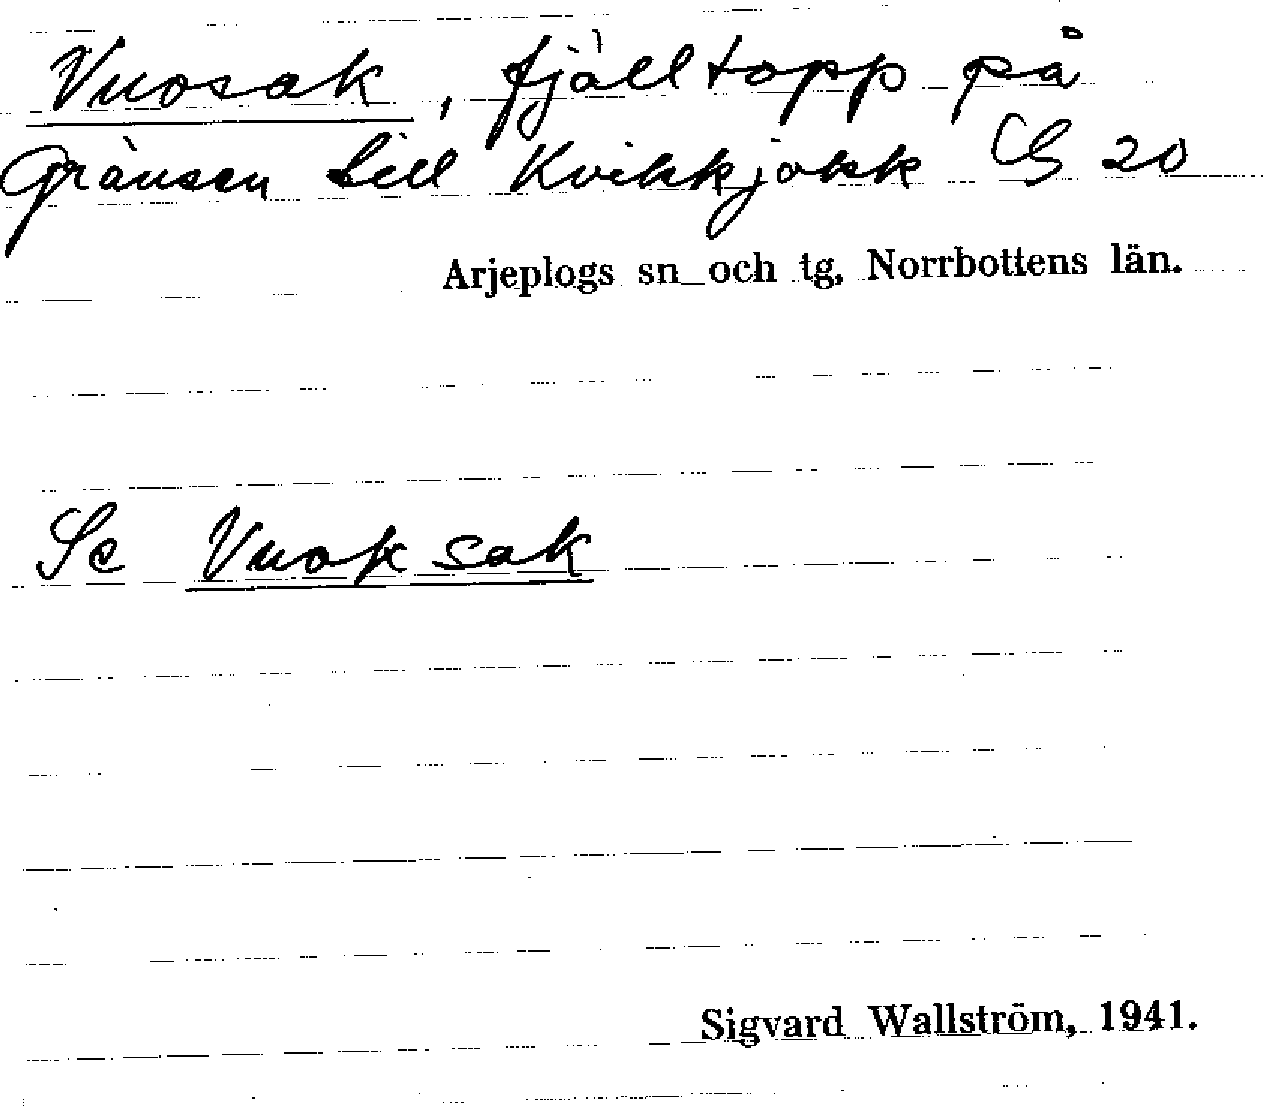 Vuosak, fjälltopp på
Gränsen till Kvikkjokk G 20
Arjeplogs sn och tg, Norrbottens län.
Se Vuoksak
Sigvard Wallström, 1941.